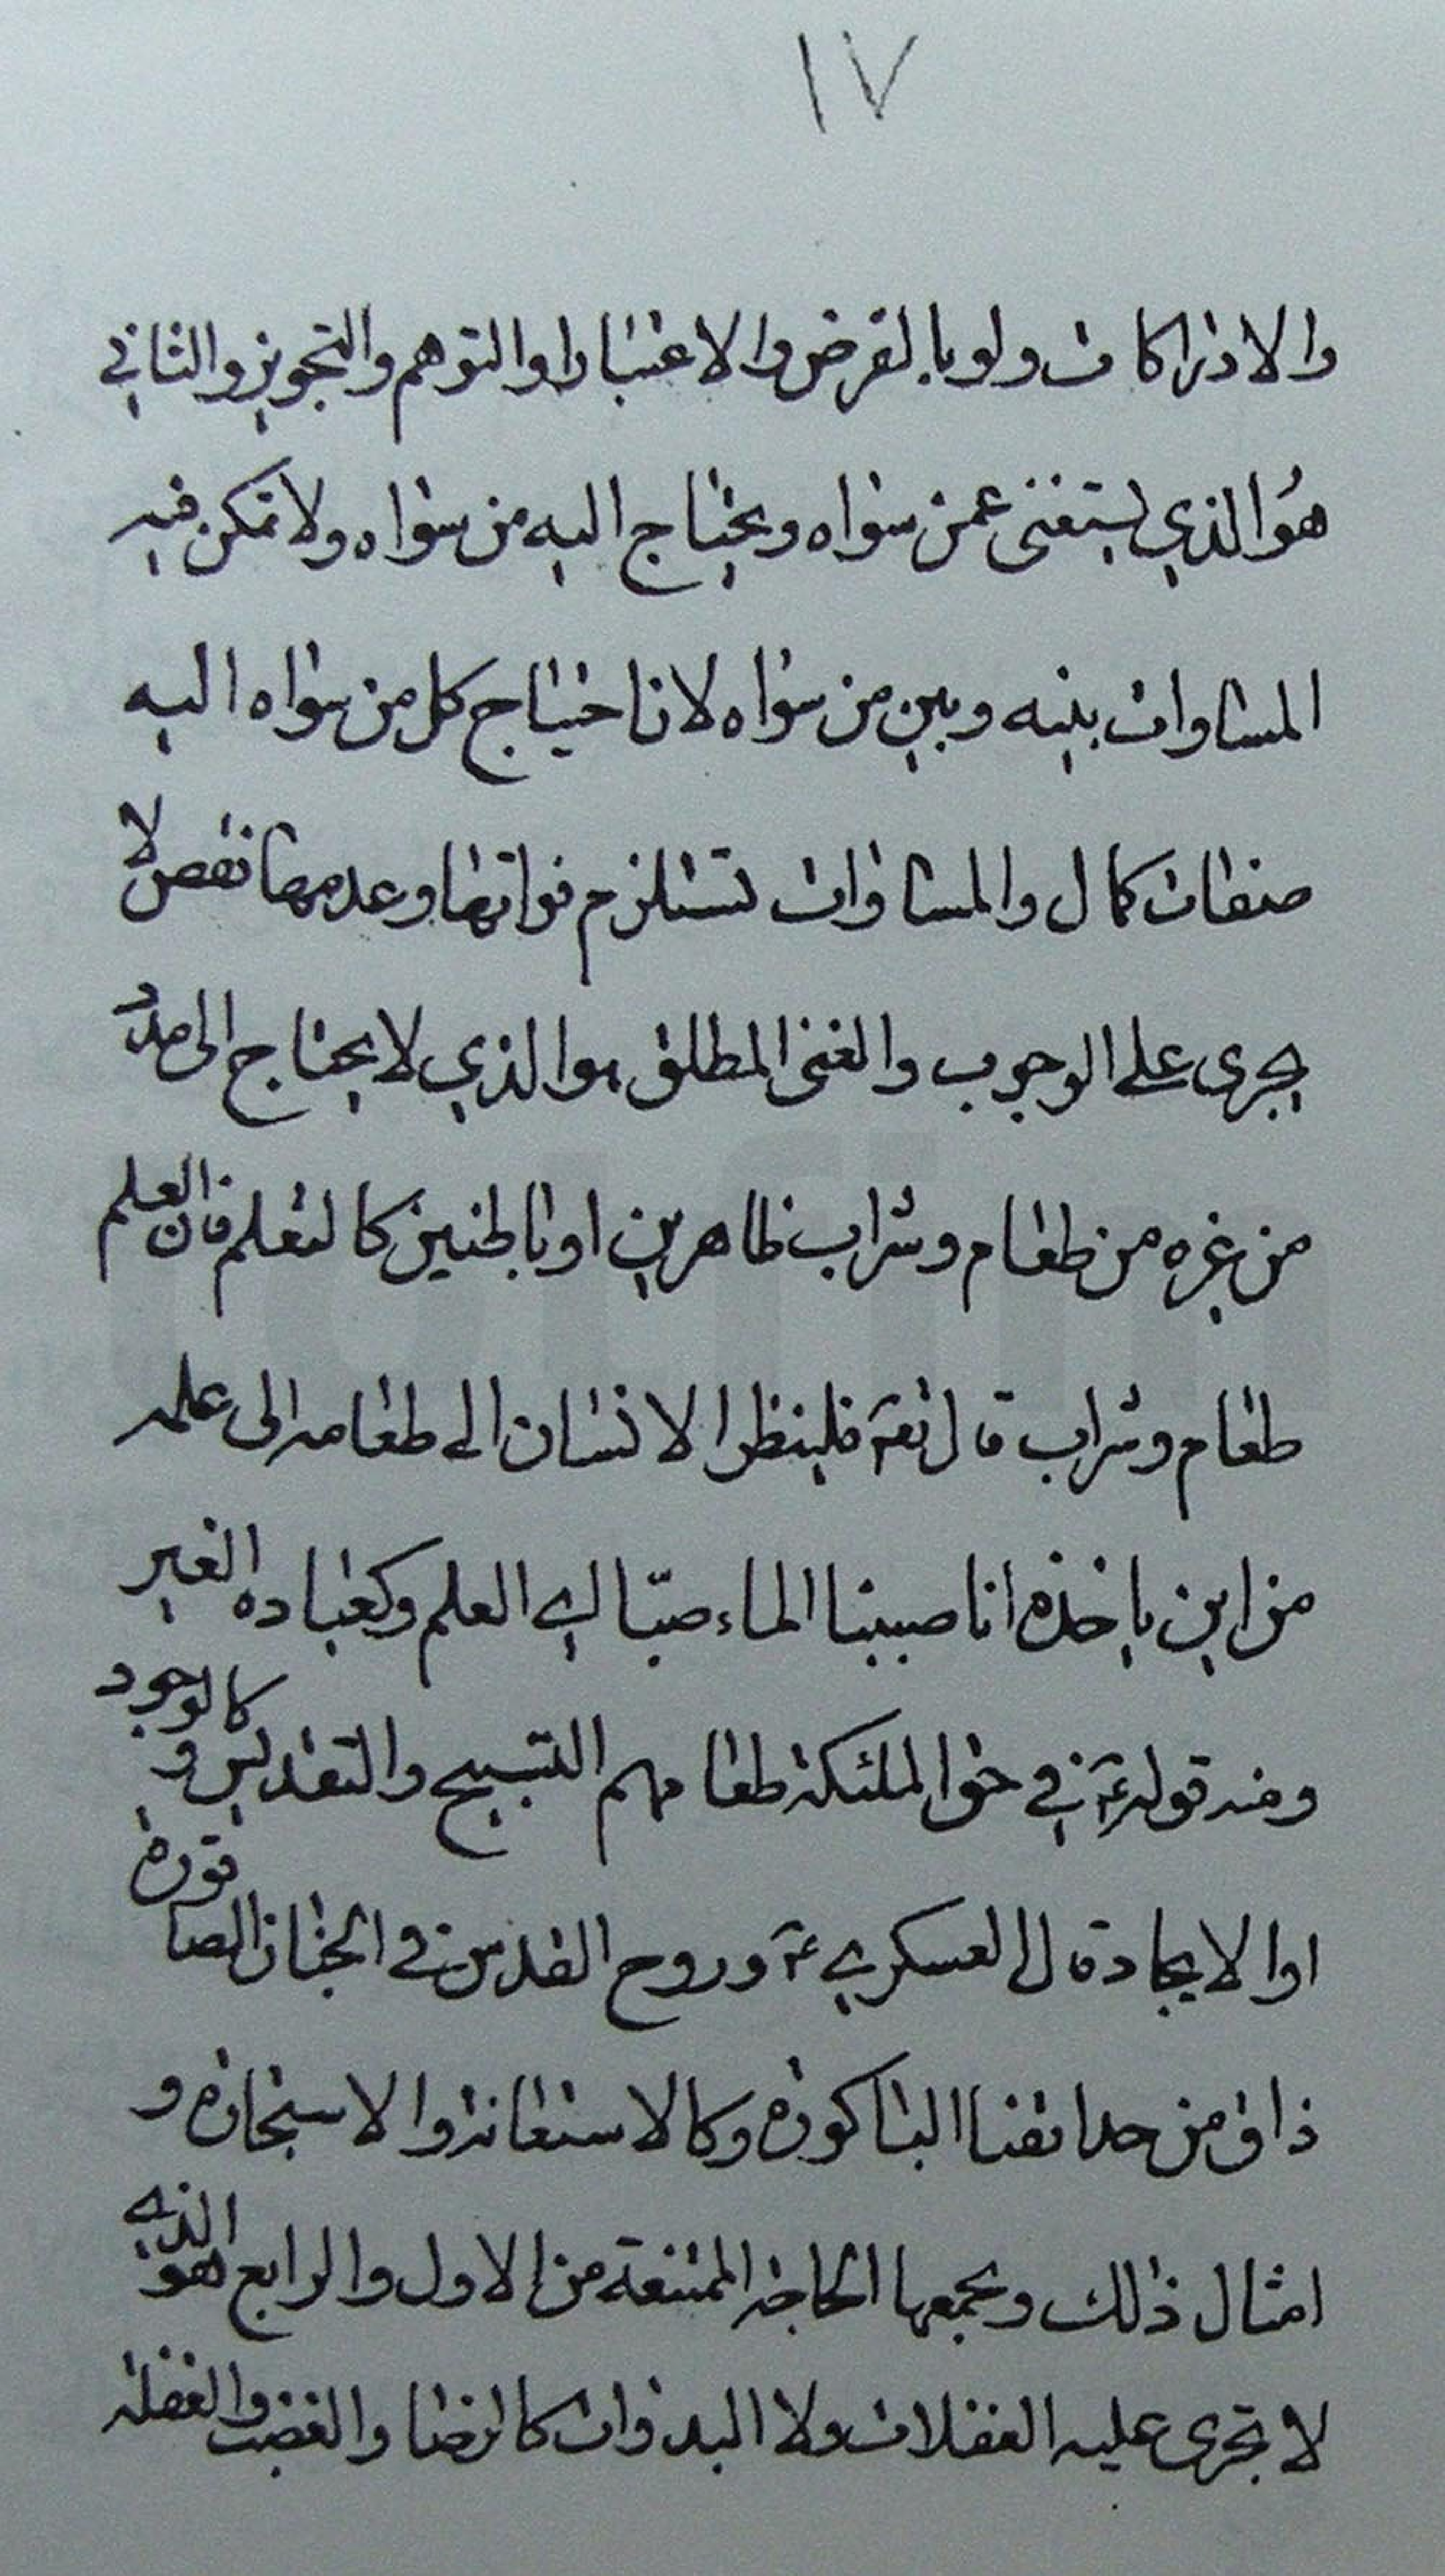 ١٧
والادراكات ولو بالفرض والاعتبار او التوهم والتجويز والثاني
هو الذي يستغنى عمن سواه ويحتاج اليه من سواه ولا تمكن فيه
المساوات بينه وبين من سواه لان احتياج كل من سواه اليه
صفات كمال والمساوات تستلزم فواتها وعدمها نقص لا
يجرى على الوجوب والغنى المطلق هو الذي لا يحتاج الى مدد
من غيره من طعام وشراب ظاهرين او باطنين كالتعلم فان العلم
طعام وشراب قال تعـ فلينظر الانسان الى طعامه الى علمه
من اين ياخذه انا صببنا الماء صبّا اي العلم وكعباده الغير
ومنه قوله عـ في حق الملئكة طعامهم التسبيح والتقديس و كالوجود
او الايجاد قال العسكري عـ وروح القدس في الجنان الصاقورة
ذاق من حدائقنا الباكورة وكالاستعانة والاستجارة و
امثال ذلك ويجمعها الحاجة الممتنعة من الاول والرابع هو الذي
لا تجرى عليه الغفلات ولا البدوات كالرضا والغضب والغفلة